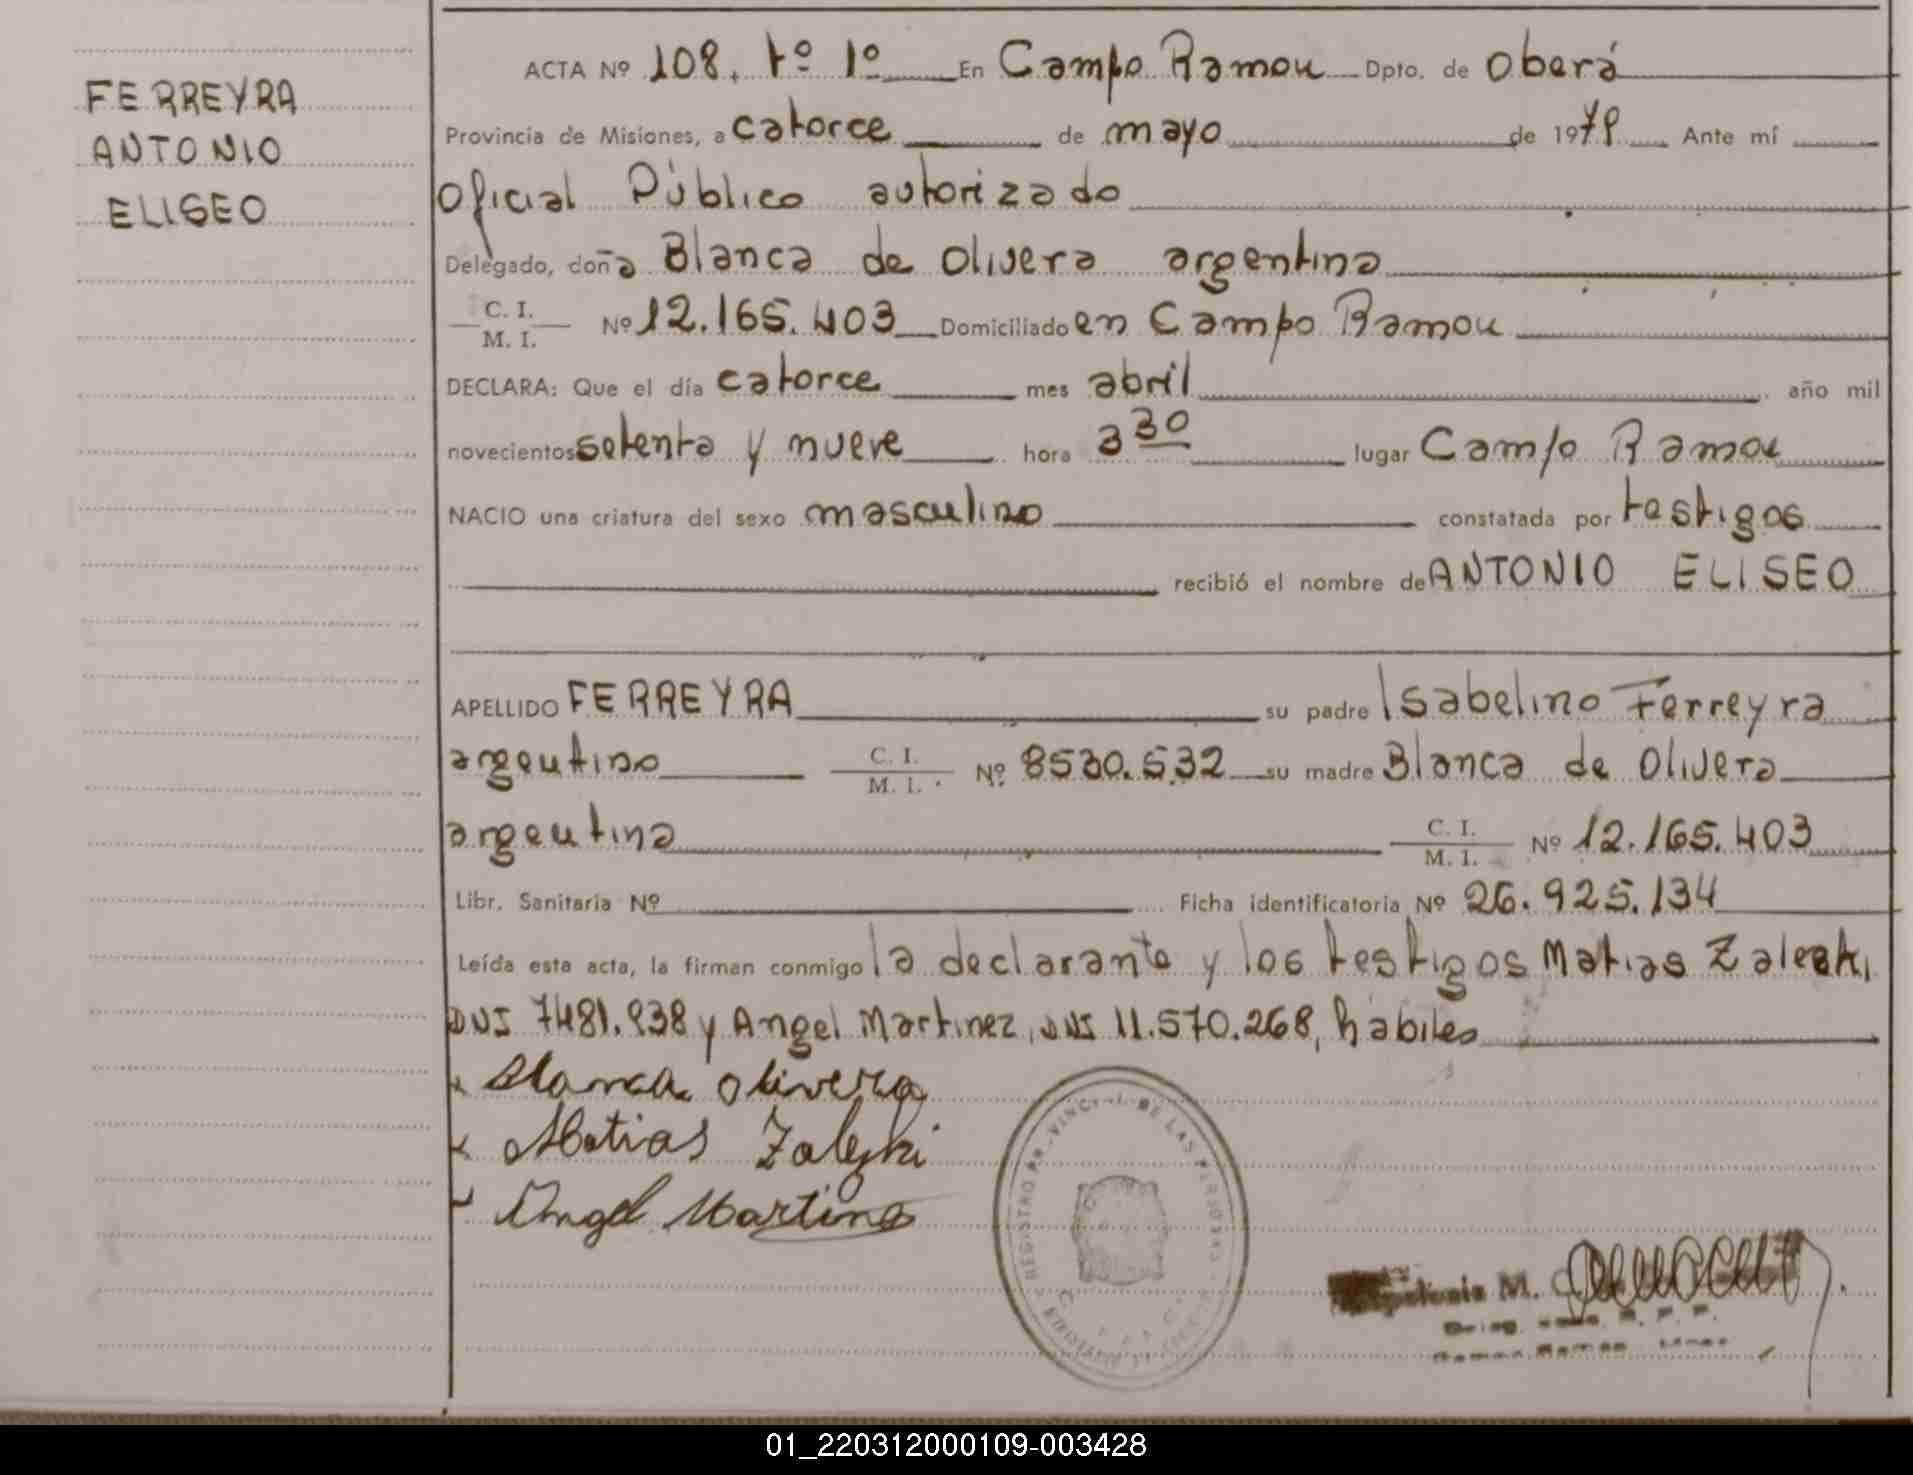 FERREYRA
ANTONIO
ELISEO
ACTA Nº 108. tº 1º En Campo Ramou Dpto. de Oberá
Provincia de Misiones, a catorce de mayo de 1979 Ante mí
Oficial Público autorizado
Delegado, doña Blanca de Olivera argentina
C. I.
M. I.
Nº 12.165.403 Domiciliado en Campo Ramou
DECLARA: Que el día catorce mes abril año mil
novecientos setenta y nueve hora 3 30 lugar Campo Ramou
NACIO una criatura del sexo masculino constatada por testigos
recibió el nombre de ANTONIO ELISEO
APELLIDO FERREYRA su padre Isabelino Ferreyra
argentino C. I. M. I. Nº 8530.532 su madre Blanca de Olivera
argentina C. I. M. I. Nº 12.165.403
Libr. Sanitaria Nº Ficha identificatoria Nº 26.925.134
Leída esta acta, la firman conmigo la declarante y los testigos Matias Zaleski,
DNI 7481.938 y Angel Martinez, DNI 11.570.268, hábiles
x Blanca Olivera
x Matias Zaleski
Angel Martines
REGISTRO PROVINCIAL DE LAS PERSONAS
M.
01_220312000109-003428